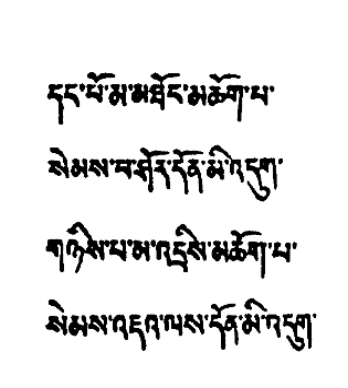 དང་པོ་མ་མཐོང་མཆོག་པ་
སེམས་པ་ཤོར་དོན་མི་འདུག་
གཉིས་པ་མ་འདྲིས་མཆོག་པ་
སེམས་འདའ་ལས་དོན་མི་འདུག་